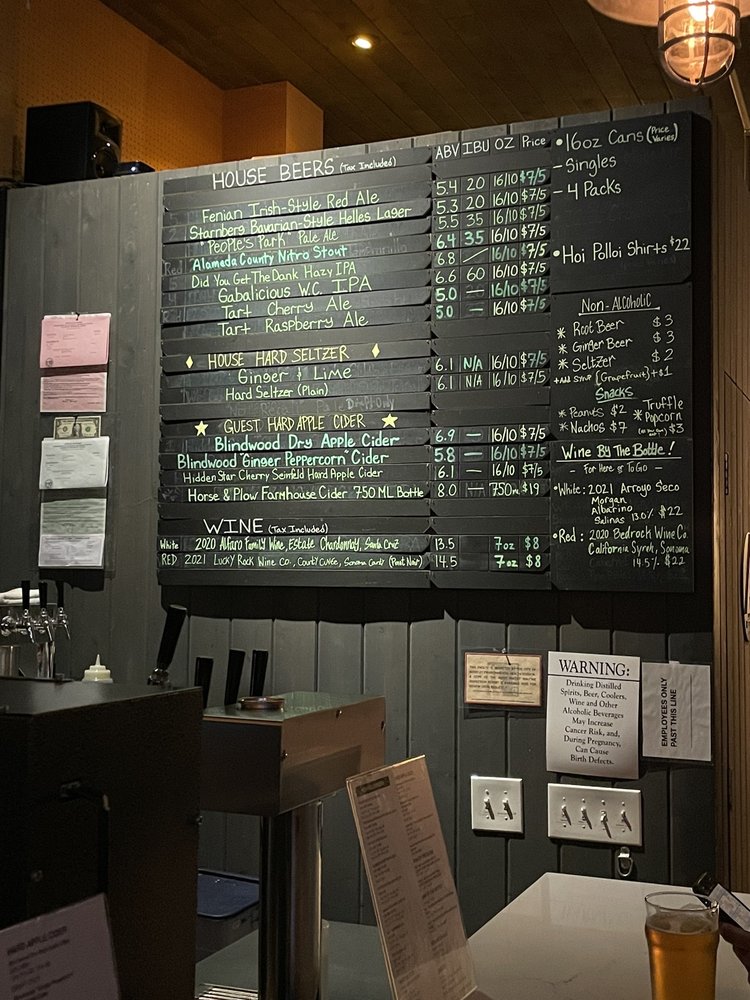 HOUSE BEERS (Tax Included) ABV IBU OZ Price
Fenian Irish-Style Red Ale 5.4 20 16/10 $7/5
Starnberg Bavarian-Style Helles Lager 5.3 20 16/10 $7/5
"People's Park" Pale Ale 5.5 35 16/10 $7/5
Alameda County Nitro Stout 6.4 35 16/10 $7/5
Did You Get The Dank Hazy IPA 6.8 16/10 $7/5
Gabalicious W.C. IPA 6.6 60 16/10 $7/5
Tart Cherry Ale 5.0 — 16/10 $7/5
Tart Raspberry Ale 5.0 — 16/10 $7/5
HOUSE HARD SELTZER
Ginger & Lime 6.1 N/A 16/10 $7/5
Hard Seltzer (Plain) 6.1 N/A 16/10 $7/5
GUEST HARD APPLE CIDER
Blindwood Dry Apple Cider 6.9 — 16/10 $7/5
Blindwood "Ginger Peppercorn" Cider 5.8 — 16/10 $7/5
Hidden Star Cherry Seinfeld Hard Apple Cider 6.1 — 16/10 $7/5
Horse & Plow Farmhouse Cider 750 ML Bottle 8.0 — 750m $19
WINE (Tax Included)
White 2020 Alfaro Family Wine, Estate Chardonnay, Santa Cruz 13.5 7oz $8
RED 2021 Lucky Rock Wine Co., County Cuvee, Sonoma County (Pinot Noir) 14.5 7oz $8
• 16oz Cans (Price Varies)
– Singles
– 4 Packs
• Hoi Polloi Shirts $22
Non-Alcoholic
* Root Beer $3
* Ginger Beer $3
* Seltzer $2
+Add Syrup (Grapefruit) +$1
Snacks
* Peanuts $2
* Nachos $7
* Truffle
Popcorn
$3
Wine By The Bottle!
– For Here or To Go –
• White: 2021 Arroyo Seco
Morgan
Albarino
Salinas 13.0% $22
• Red: 2020 Bedrock Wine Co.
California Syrah, Sonoma
14.5% $22
WARNING:
Drinking Distilled
Spirits, Beer, Coolers,
Wine and Other
Alcoholic Beverages
May Increase
Cancer Risk, and,
During Pregnancy,
Can Cause
Birth Defects.
EMPLOYEES ONLY
PAST THIS LINE
HARD APPLE CIDER